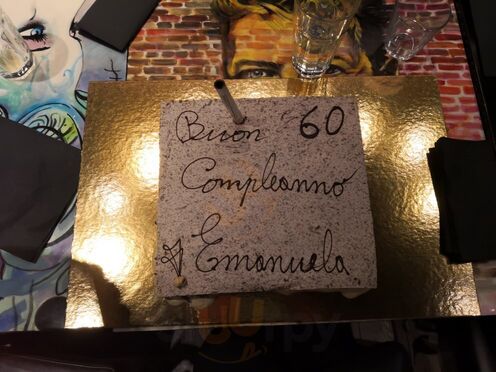 Buon 60
Compleanno
Emanuela